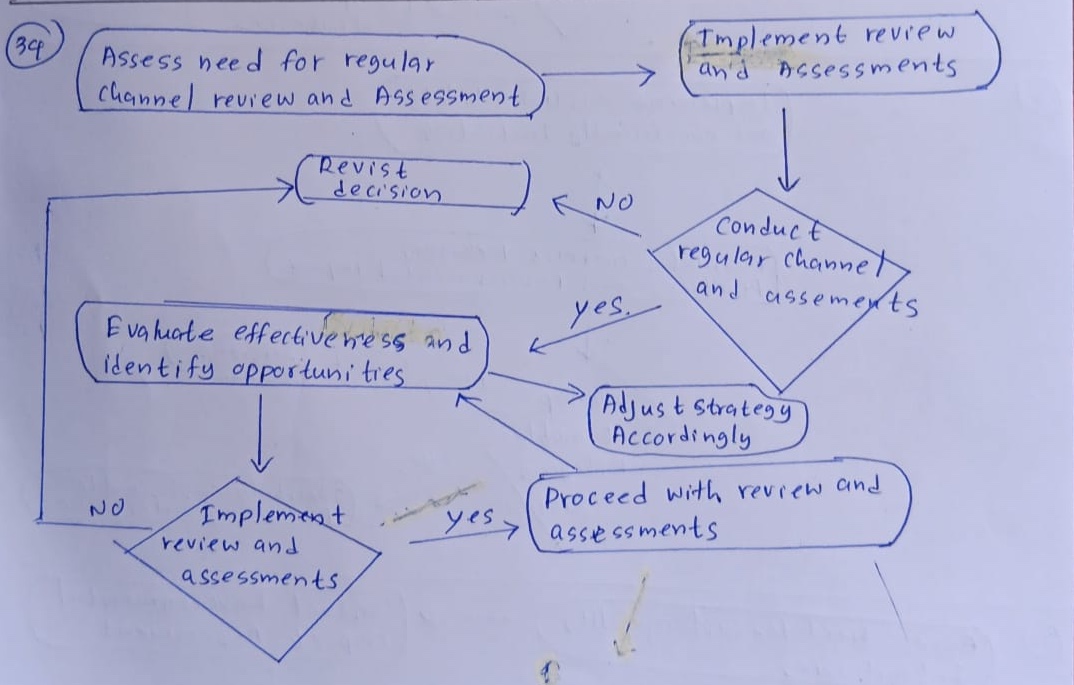 39
Assess need for regular
channel review and Assessment
Implement review
and Assessments
Revist
decision
NO
Conduct
regular channel
and assements
yes.
Evaluate effectiveness and
identify opportunities
Adjust strategy
Accordingly
NO
Implement
review and
assessments
yes
Proceed with review and
assessments